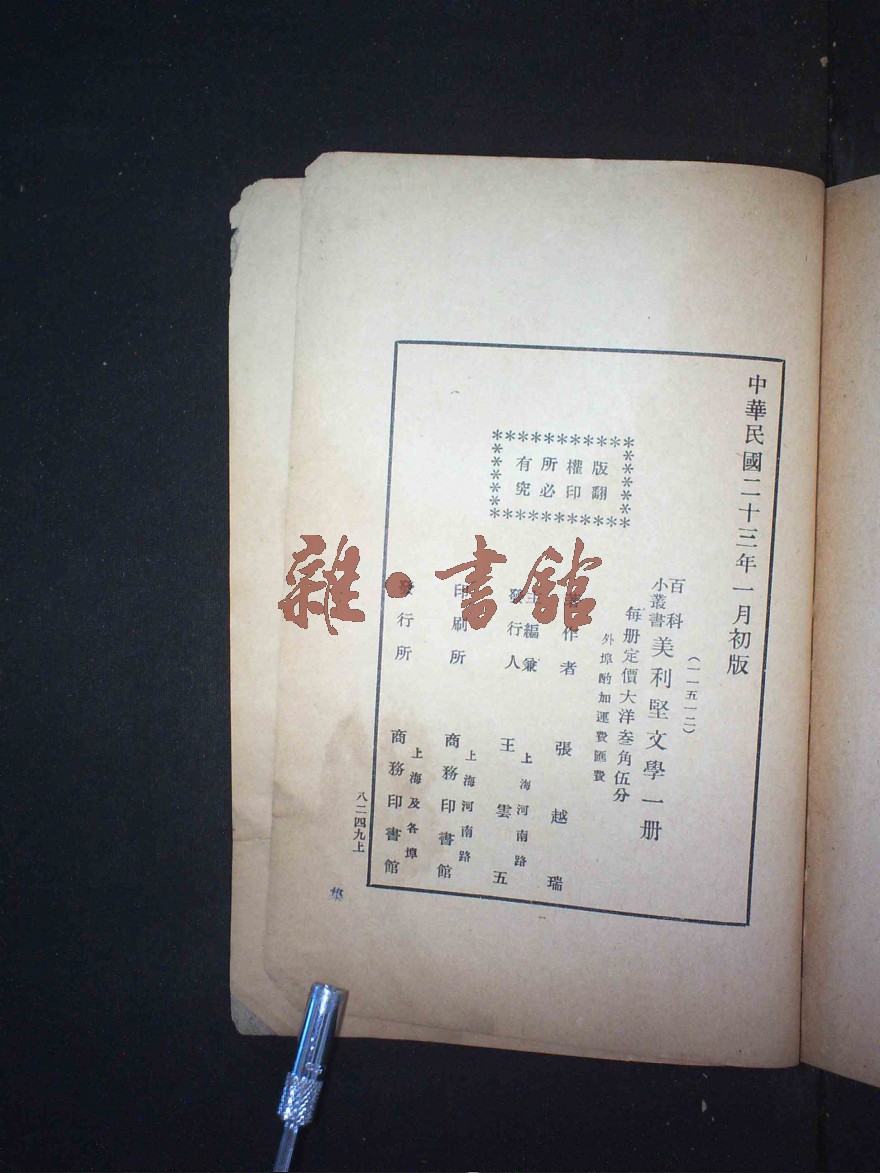 中華民國二十三年一月初版
(一一五一二)
百科
小叢書
美利堅文學一册
每册定價大洋叁角伍分
外埠酌加運費匯費
版權所有
翻印必究
著作者
張越瑞
主編兼
發行人
上海河南路
王雲五
印刷所
上海河南路
商務印書館
發行所
上海及各埠
商務印書館
八二四九上
雜·書館